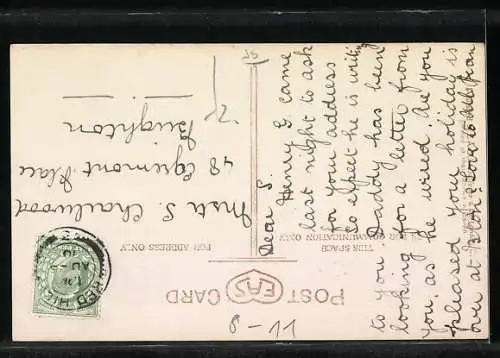 POST EAS CARD
THIS SPACE
FOR COMMUNICATION ONLY
FOR ADDRESS ONLY
Dear S.
Henry G. came
last night to ask
for your address
so expect he is writing
to you. Daddy has been
looking for a letter from
you, as he wired. Are you
pleased your holiday is
over at B'ton? Love to
48 Egremont Place
Brighton
8-11